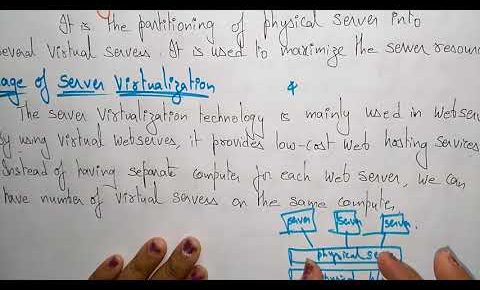 It is the partitioning of physical server into
several virtual servers. It is used to maximize the server resourc
age of Server Virtualization
The server virtualization technology is mainly used in webserv
By using virtual webserves, it provides low-cost web hosting services
Instead of having separate computer for each web server, we can
have numer of virtual servers on the same computer.
server serve serve
physical se
physical